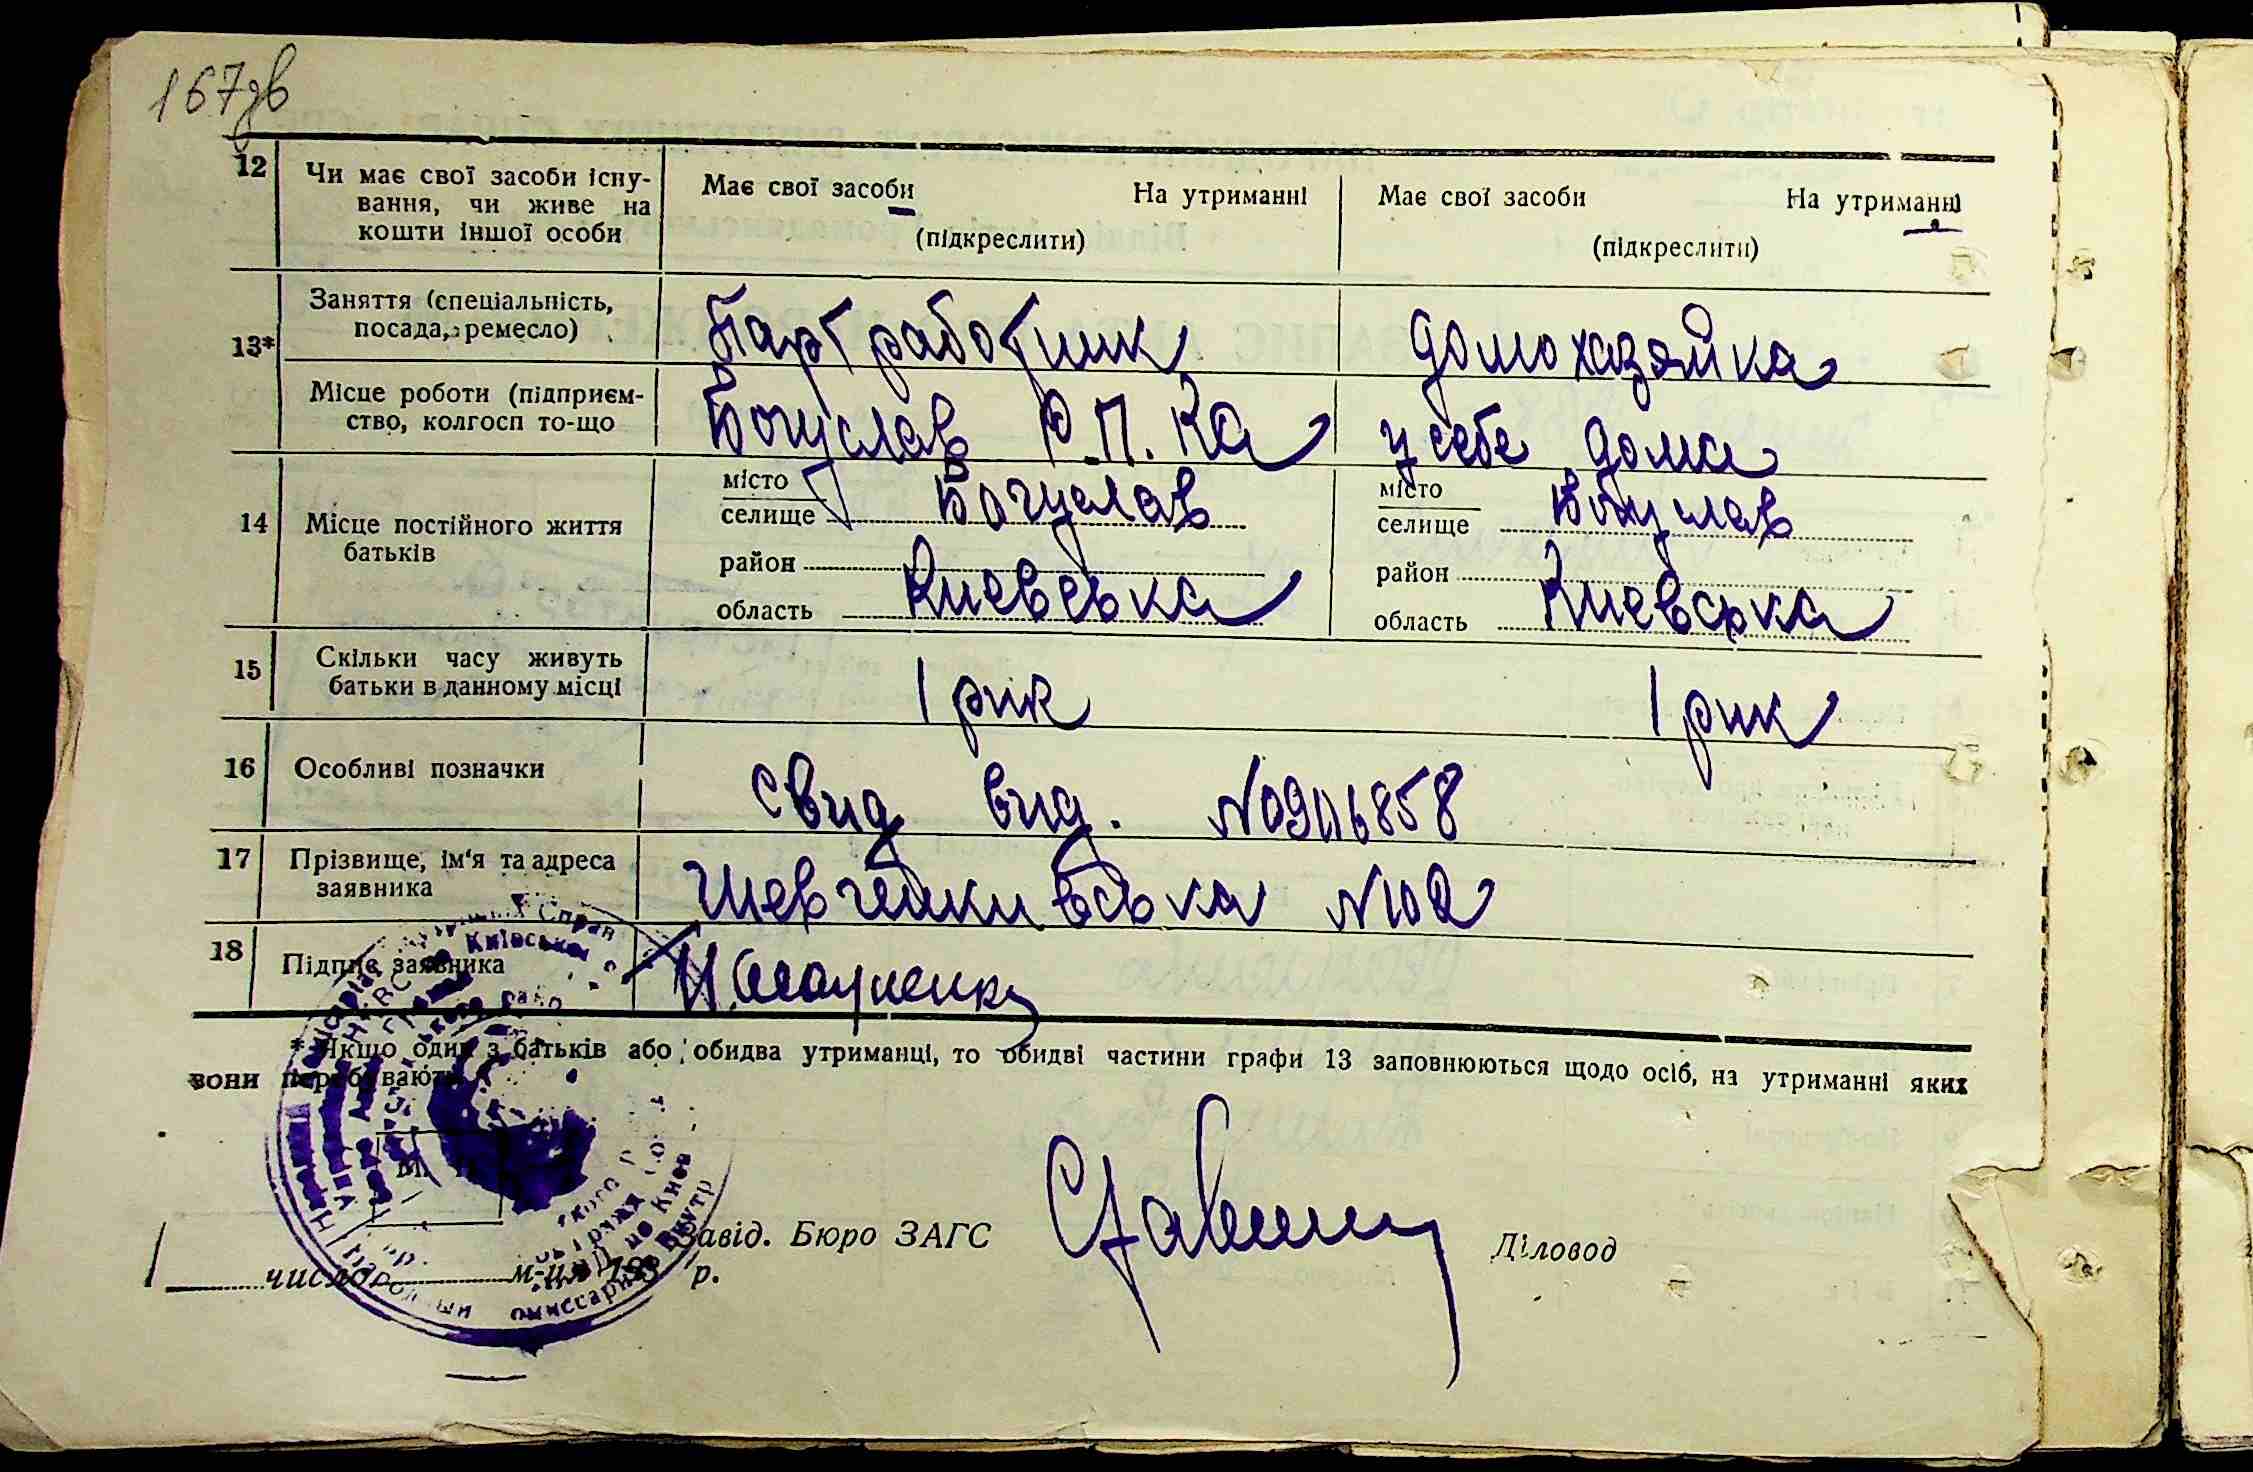 167зв
12 Чи має свої засоби існу-
вання, чи живе на
кошти іншої особи
Має свої засоби На утриманні
(підкреслити)
Має свої засоби На утриманні
(підкреслити)
13*
Заняття (спеціальність,
посада, ремесло)
Партработник
домохазяйка
Місце роботи (підприєм-
ство, колгосп то-що
Богуслав Р.П.Ка
у себе дома
14 Місце постійного життя
батьків
місто
селище Богуслав
район
область Киевська
місто
селище Богуслав
район
область Киевська
15 Скільки часу живуть
батьки в данному місці
1 рик
1 рик
16 Особливі позначки
свид вид. №
17 Прізвище, ім'я та адреса
заявника
Шевченкивська №
18 Підпис заявника
* Якщо один з батьків або обидва утриманці, то обидві частини графи 13 заповнюються щодо осіб, на утриманні яких
вони перебувають
Завід. Бюро ЗАГС
Діловод
число м-ця 193 р.